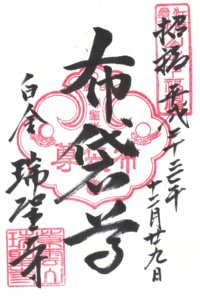 招福 平成
十二月廿九日
布袋尊
白金 瑞聖寺